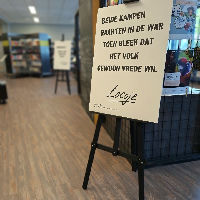 BEIDE KAMPEN
RAAKTEN IN DE WAR
TOEN BLEEK DAT
HET VOLK
GEWOON VREDE WIL.
Loesje